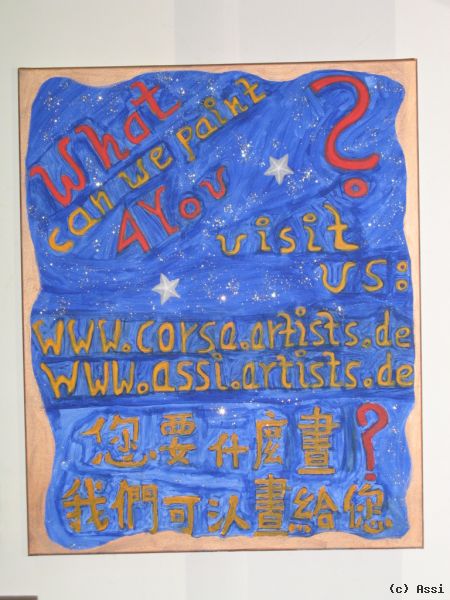 What
can we paint
4 You ?
visit
us:
www.corsa.artists.de
www.assi.artists.de
您要什麼畫?
我們可以畫給您
(c) Assi